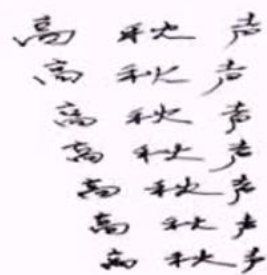 高 秋 声
高 秋 声
高 秋 声
高 秋 声
高 秋 声
高 秋 声
高 秋 声